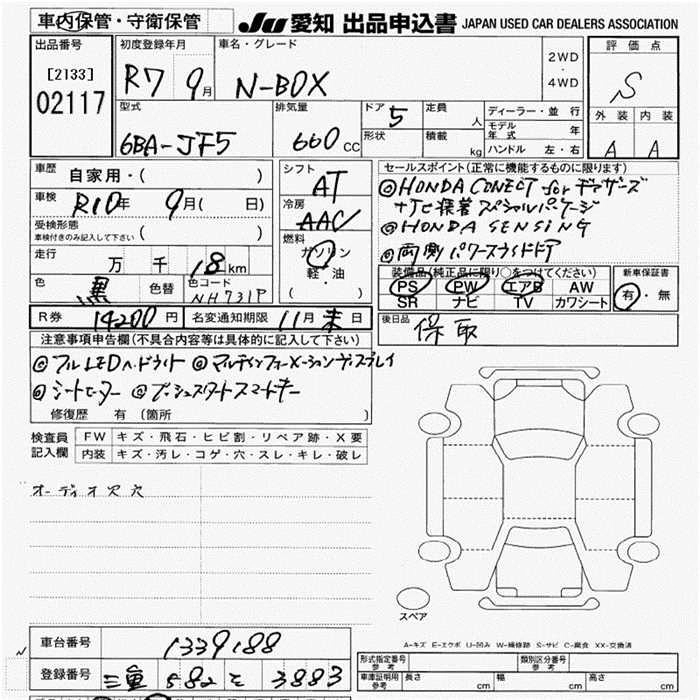 車内保管・守衛保管 JU 愛知 出品申込書 JAPAN USED CAR DEALERS ASSOCIATION
出品番号 初度登録年月 車名・グレード 2WD・4WD 評価点
[2133] 02117 R7 9月 N-BOX S
型式 排気量 ドア 5 定員 人 ディーラー・並行 外装 内装
6BA-JF5 660 CC 形状 積載 kg モデル年式 年 A A
ハンドル 左・右
車歴 自家用・( ) シフト AT セールスポイント(正常に機能するものに限ります)
車検 R10年 9月( 日) 冷房 AAC ◎HONDA CONECT for
受検形態 車検付きのみ記入して下さい ( ) ナビ装着スペシャルパッケージ
燃料 ガソリン 軽・油 ( ) ◎HONDA SENSING
走行 万 千 18 km ◎両側パワースライドドア
色 黒 色替 色コード NH731P 装備品(純正品に限り○をつけてください) 新車保証書
PS PW エアB AW 有・無
SR ナビ TV カワシート
R券 14200円 名変通知期限 11月末日 後日品 保 取
注意事項申告欄(不具合内容等は具体的に記入して下さい)
◎フルLEDヘッドライト ◎マルチインフォメーションディスプレイ
◎シートヒーター ◎プッシュスタートスマートキー
修復歴 有 (箇所 )
検査員記入欄 FW キズ・飛石・ヒビ割・リペア跡・X要
内装 キズ・汚レ・コゲ・穴・スレ・キレ・破レ
オーディオ穴
スペア
A=キズ E=エクボ U=凹み W=補修跡 S=サビ C=腐食 XX=交換済
車台番号 1339188
登録番号 三重 582 そ 3883
形式指定番号 参考 類別区分番号 参考
車庫証明用 参考 長さ cm 幅 cm 高さ cm